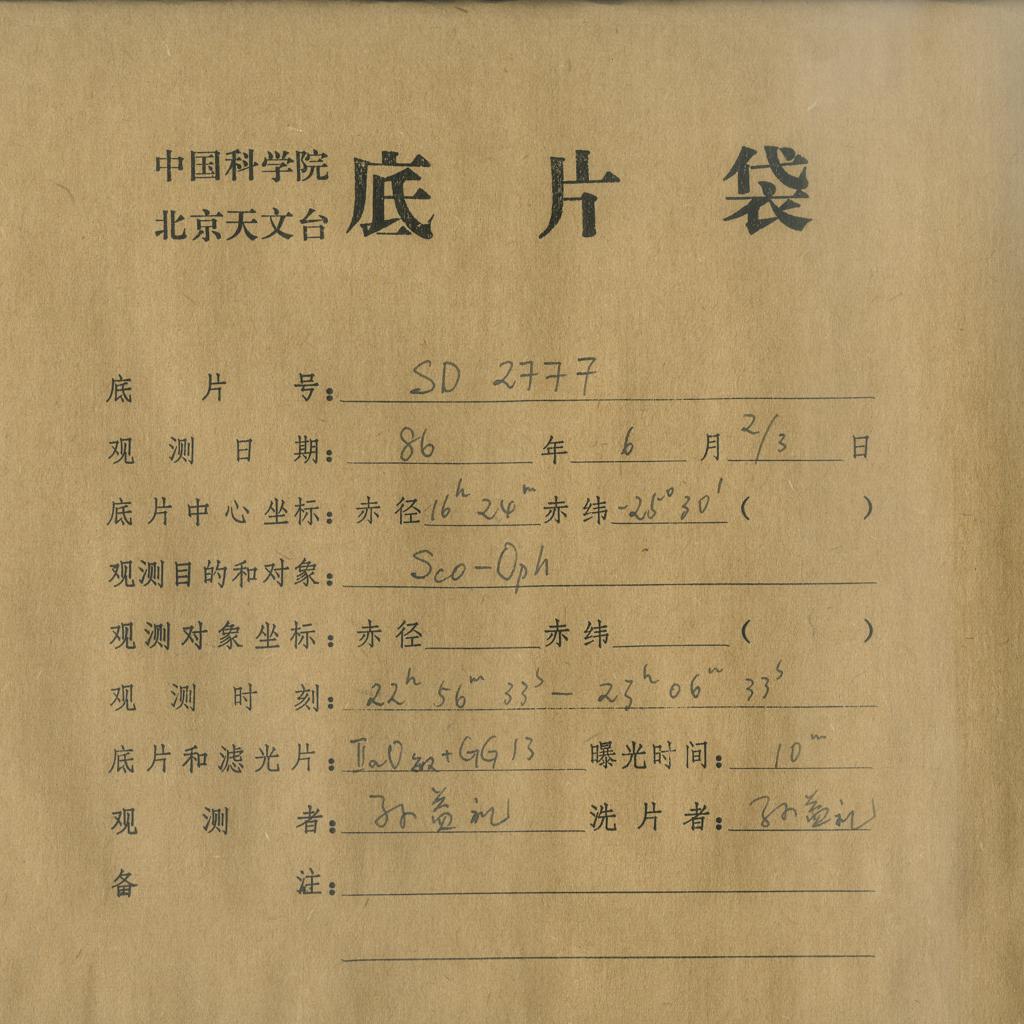 中国科学院
北京天文台
底片袋
底片号: SD 2777
观测日期: 86年6月2/3日
底片中心坐标: 赤径16h 24m 赤纬-25° 30′ ( )
观测目的和对象: Sco-Oph
观测对象坐标: 赤径 赤纬 ( )
观测时刻: 22h 56m 33s — 23h 06m 33s
底片和滤光片: IIaO敏+GG13 曝光时间: 10m
观测者: 孙益礼 洗片者: 孙益礼
备注: